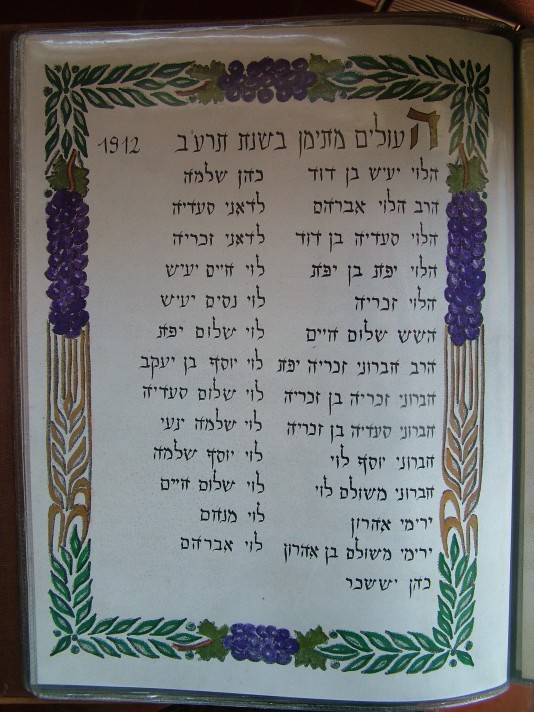 העולים מתימן בשנת תרע״ב 1912
הלוי יעיש בן דוד
הרב הלוי אברהם
הלוי סעדיה בן דוד
הלוי יפת בן יפת
הלוי זכריה
השש שלום חיים
הרב חברוני זכריה יפת
חברוני זכריה בן זכריה
חברוני סעדיה בן זכריה
חברוני יוסף לוי
חברוני משולם לוי
ירימי אהרון
ירימי משולם בן אהרון
כהן יששכר
כהן שלמה
לדאני סעדיה
לדאני זכריה
לוי חיים יעיש
לוי נסים יעיש
לוי שלום יפת
לוי יוסף בן יעקב
לוי שלום סעדיה
לוי שלמה ינעי
לוי יוסף שלמה
לוי שלום חיים
לוי מנחם
לוי אברהם